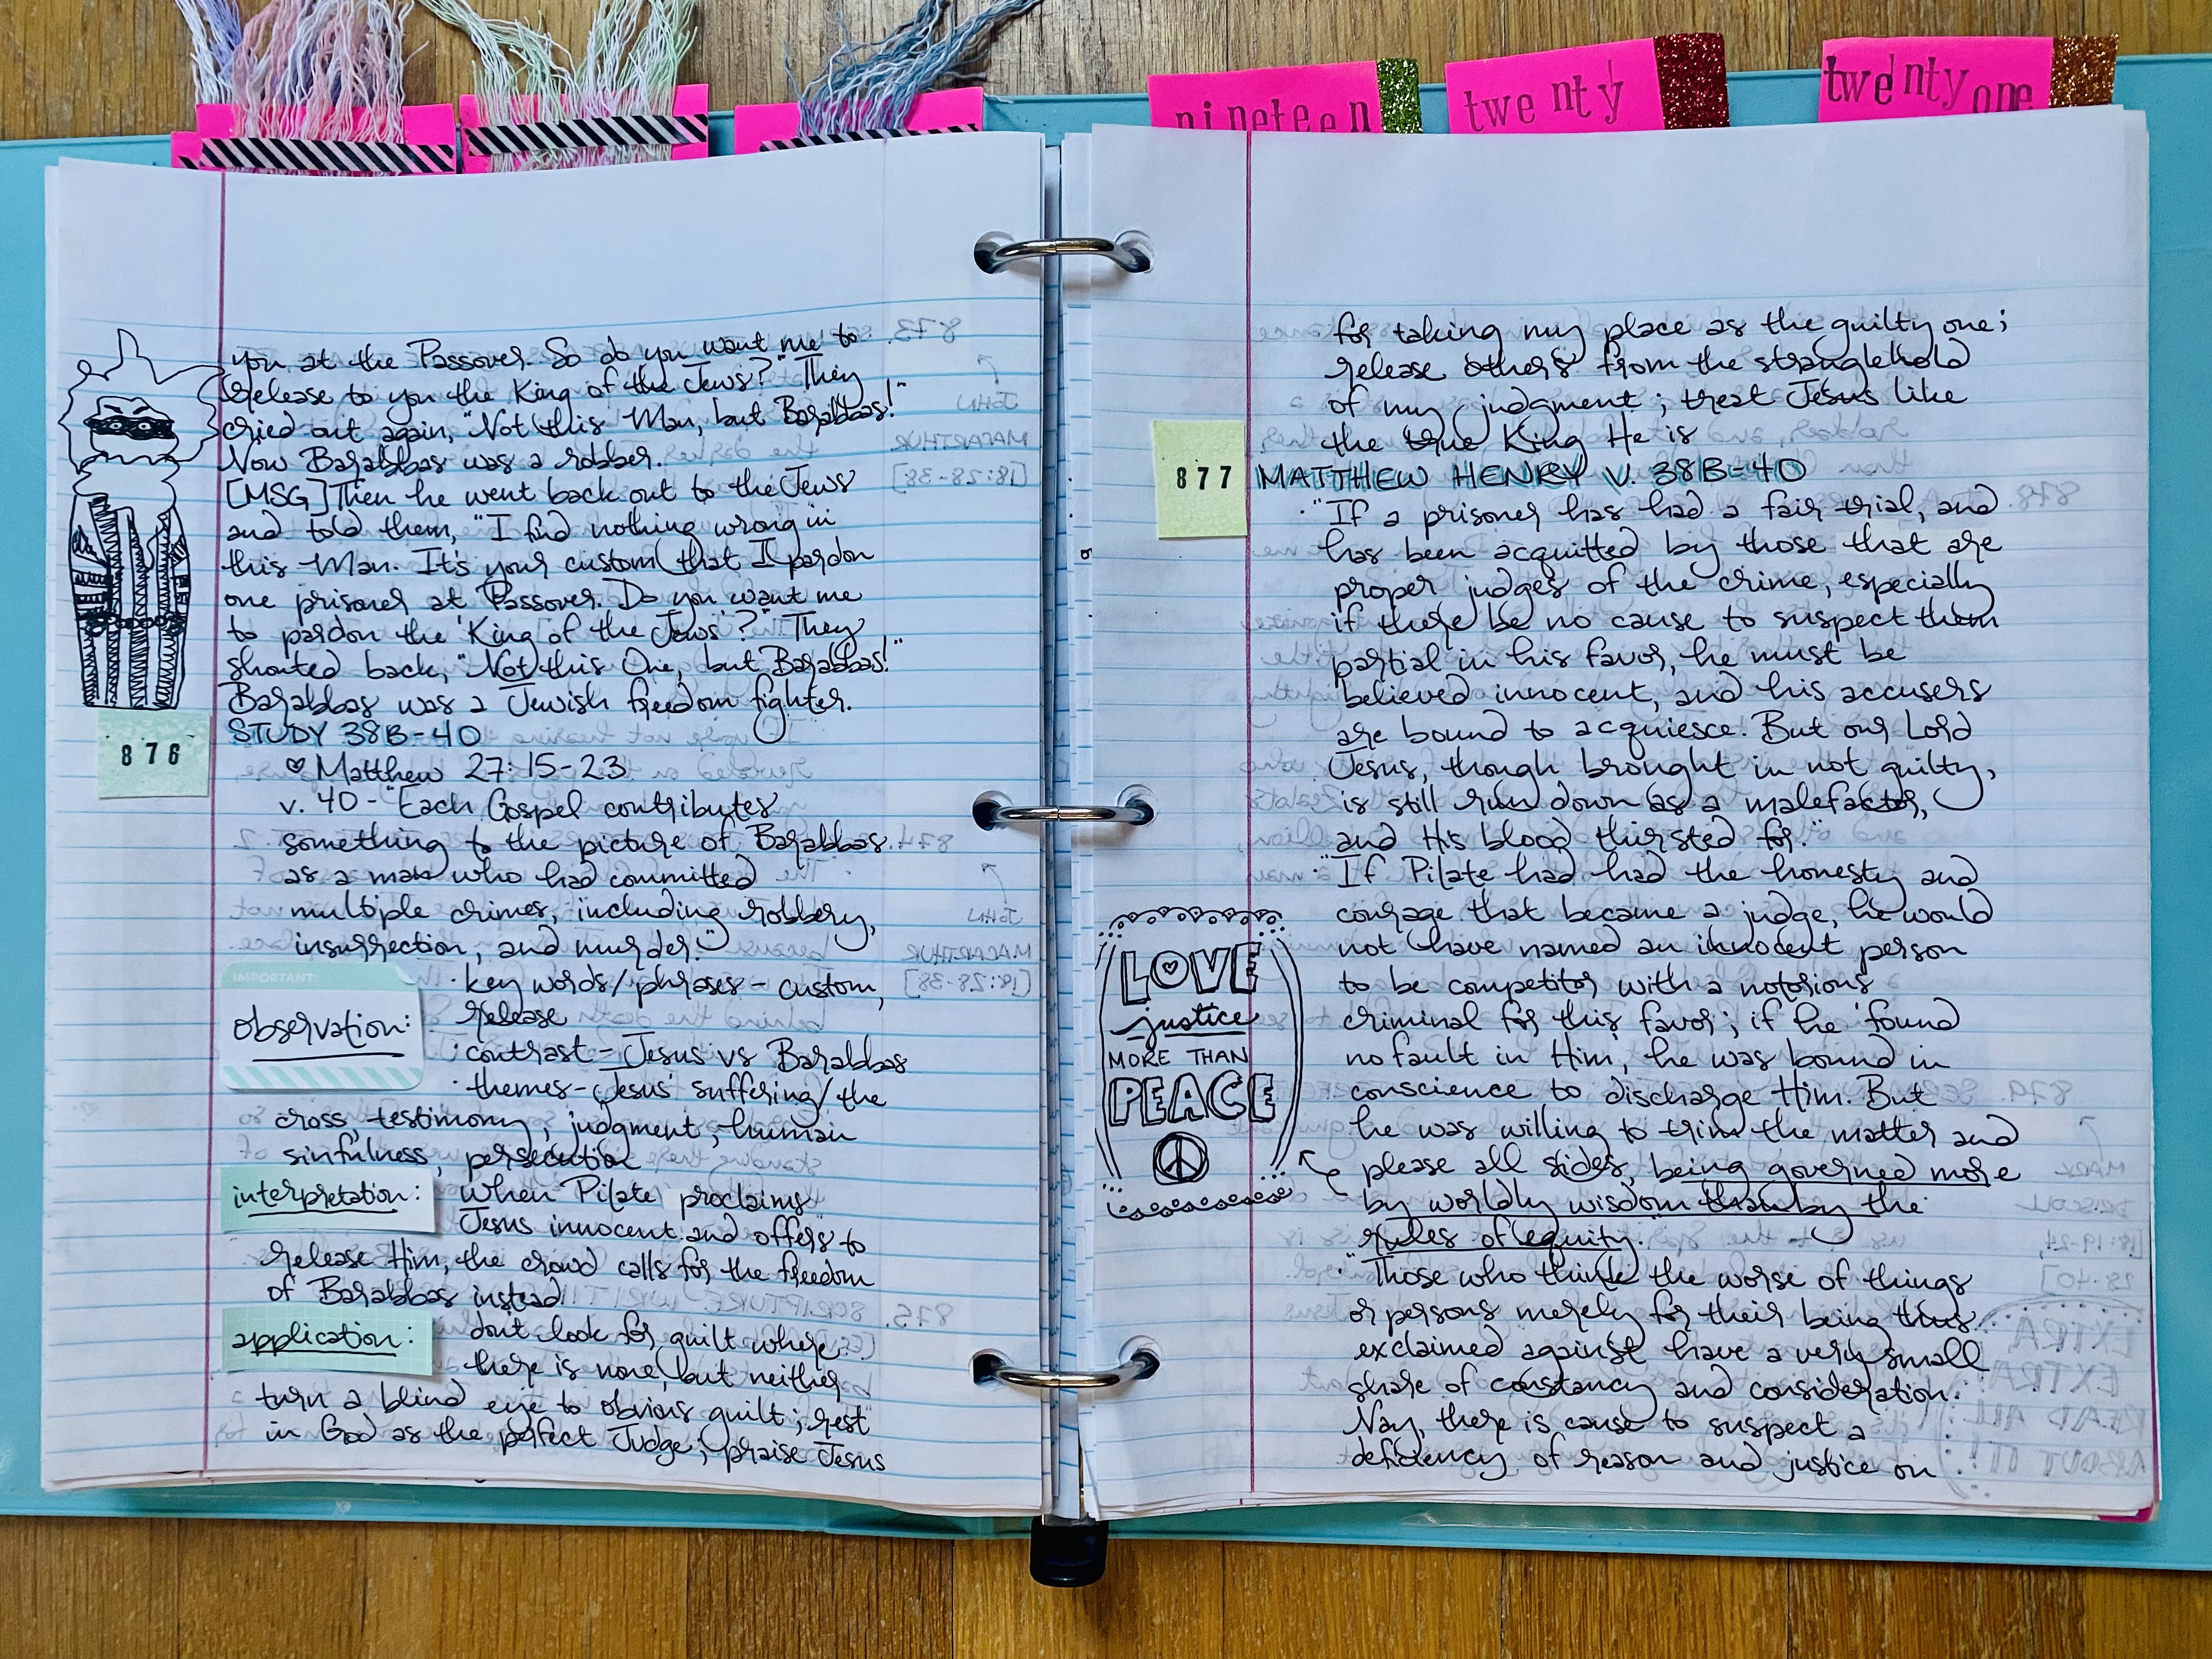 nineteen
twenty
twenty one
you at the Passover. So do you want me to
release to you the King of the Jews?" They
cried out again, "Not this Man, but Barabbas!"
Now Barabbas was a robber.
[MSG] Then he went back out to the Jews
and told them, "I find nothing wrong in
this Man. It's your custom that I pardon
one prisoner at Passover. Do you want me
to pardon the 'King of the Jews'?" They
shouted back, "Not this One, but Barabbas!"
Barabbas was a Jewish freedom fighter.
876
STUDY 38B-40
♡ Matthew 27:15-23
v. 40 - "Each Gospel contributes
something to the picture of Barabbas
as a man who had committed
multiple crimes, including robbery,
insurrection, and murder."
IMPORTANT:
observation:
· key words/phrases - custom,
release
· contrast - Jesus vs Barabbas
· themes - Jesus' suffering/the
cross, testimony, judgment, human
sinfulness, persecution
interpretation: when Pilate proclaims
Jesus innocent and offers to
release Him, the crowd calls for the freedom
of Barabbas instead
application: don't look for guilt where
there is none, but neither
turn a blind eye to obvious guilt; rest
in God as the perfect Judge; praise Jesus
for taking my place as the guilty one;
release others from the stranglehold
of my judgment; treat Jesus like
the true King He is
877
MATTHEW HENRY V. 38B-40
· "If a prisoner has had a fair trial, and
has been acquitted by those that are
proper judges of the crime, especially
if there be no cause to suspect them
partial in his favor, he must be
believed innocent, and his accusers
are bound to acquiesce. But our Lord
Jesus, though brought in not guilty,
is still run down as a malefactor,
and His blood thirsted for."
· "If Pilate had had the honesty and
courage that became a judge, he would
not have named an innocent person
to be competitor with a notorious
criminal for this favor; if he 'found
no fault in Him', he was bound in
conscience to discharge Him. But
he was willing to trim the matter and
please all sides, being governed more
by worldly wisdom than by the
rules of equity."
LOVE
justice
MORE THAN
PEACE
· "Those who think the worse of things
or persons merely for their being thus
exclaimed against have a very small
share of constancy and consideration.
Nay, there is cause to suspect a
deficiency of reason and justice on